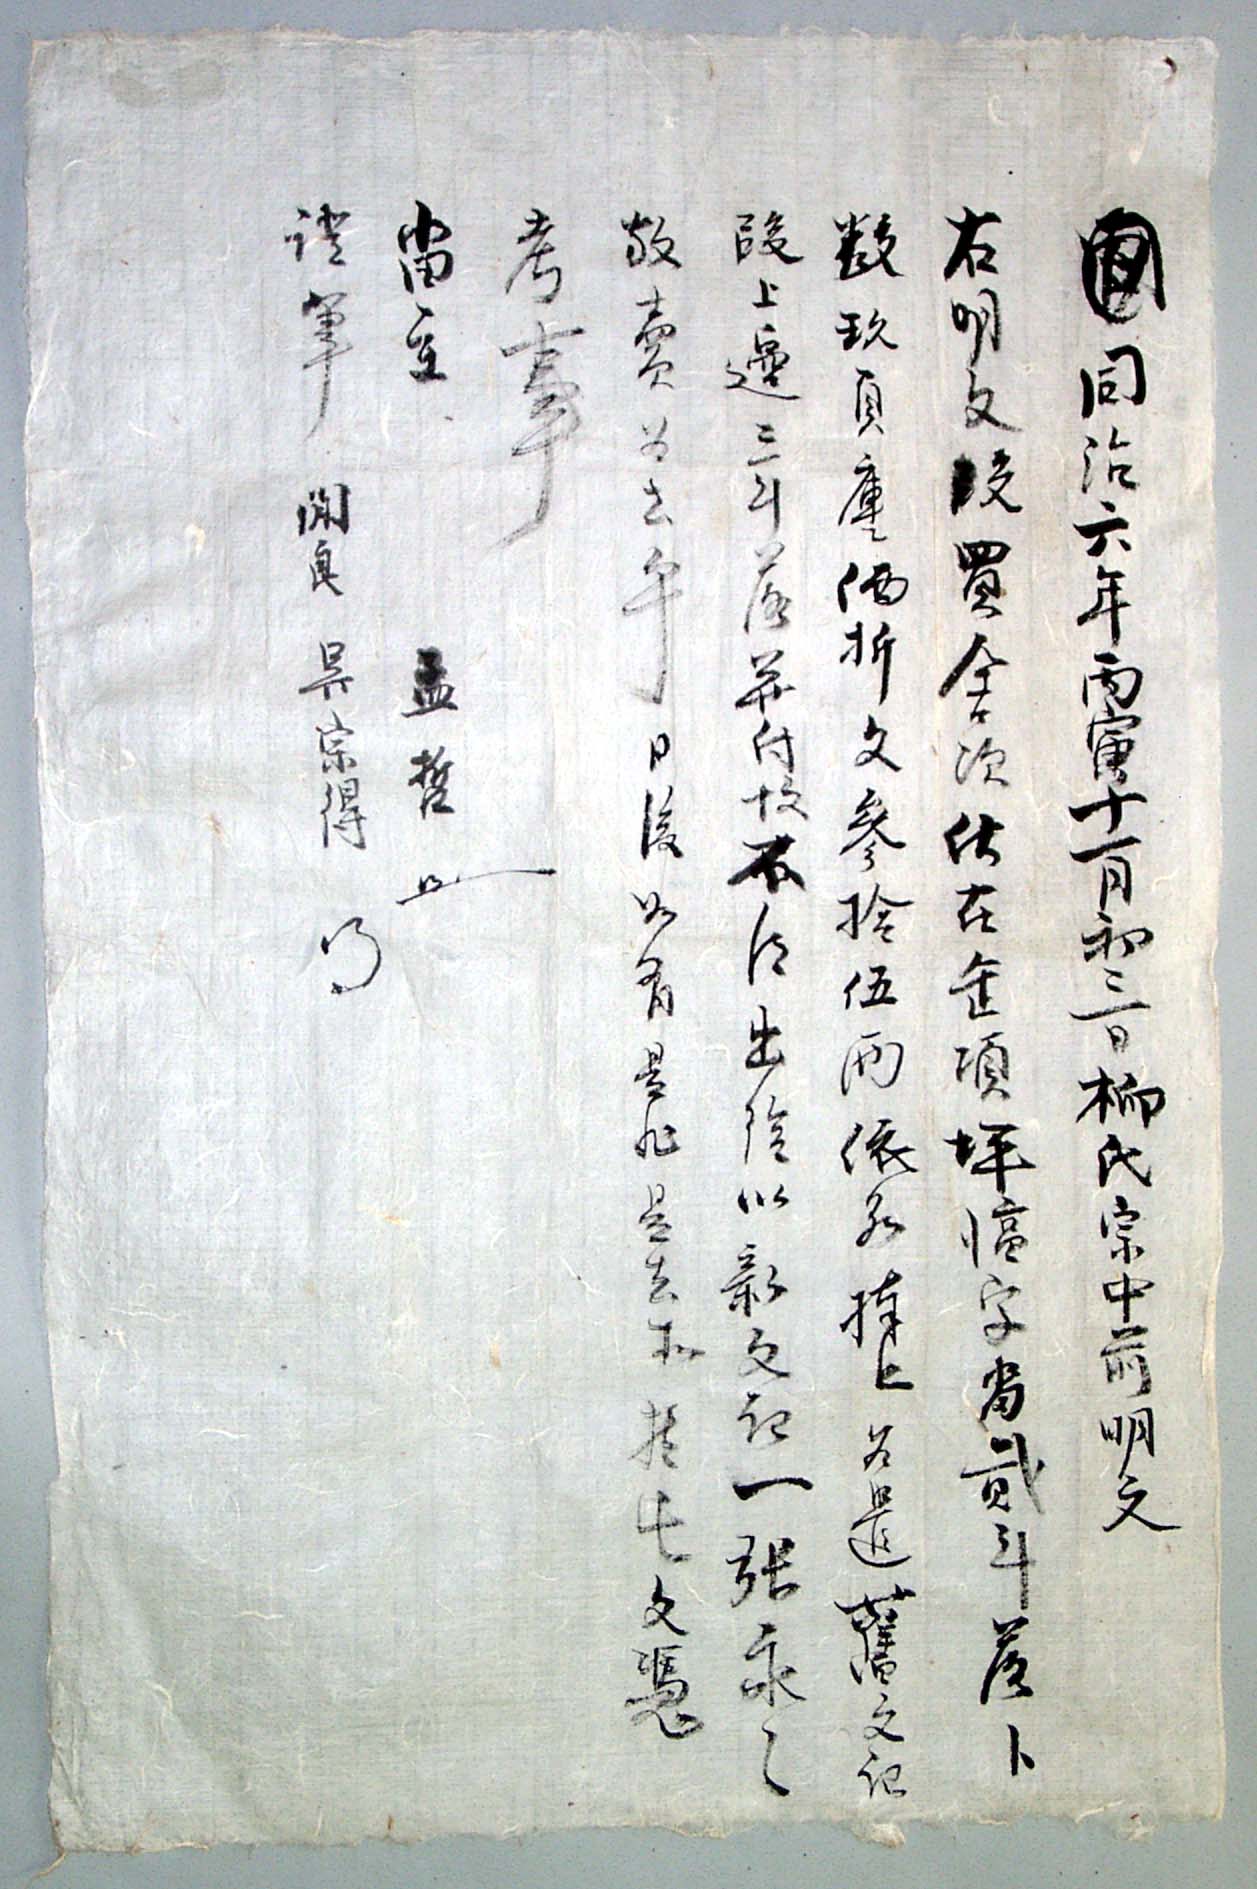 同治六年丙寅十一月初三日柳氏宗中前明文
右明文段買舍次伏在 項坪 字畓貳斗落卜
數玖負庫価折文參拾伍兩依數捧上 是遣舊文記
段上邊三斗落幷付故不得出給以新文記一張永永
放賣爲去乎日後如有是非是去等 此文憑
考事
畓主 孟哲
證筆 閑良 吳宗得